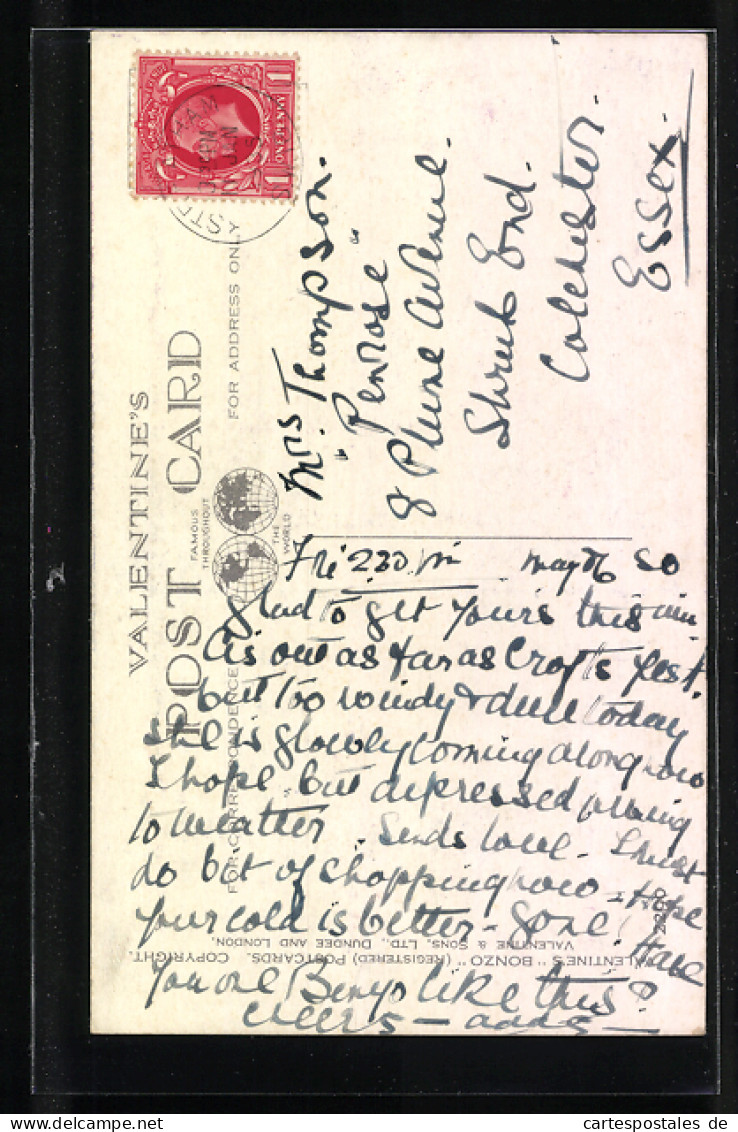 VALENTINE'S
POST CARD
FAMOUS
THROUGHOUT
THE
WORLD
FOR CORRESPONDENCE
FOR ADDRESS ONLY
ONE PENNY
Mrs. Thompson.
"Penrose"
8 Plume Avenue.
Shrub End.
Colchester.
Essex.
Fri 2.30
Glad to get yours this
out as far as Crofts yest.
but too windy & dull today
She is slowly coming along now
I hope but depressed
to weather. Sends love. I must
do bit of shopping now = Hope
your cold is better - gone! Have
you one Bonzo like this?
Cheers —
VALENTINE'S "BONZO" (REGISTERED) POSTCARDS. COPYRIGHT.
VALENTINE & SONS, LTD., DUNDEE AND LONDON.
cartespostales de